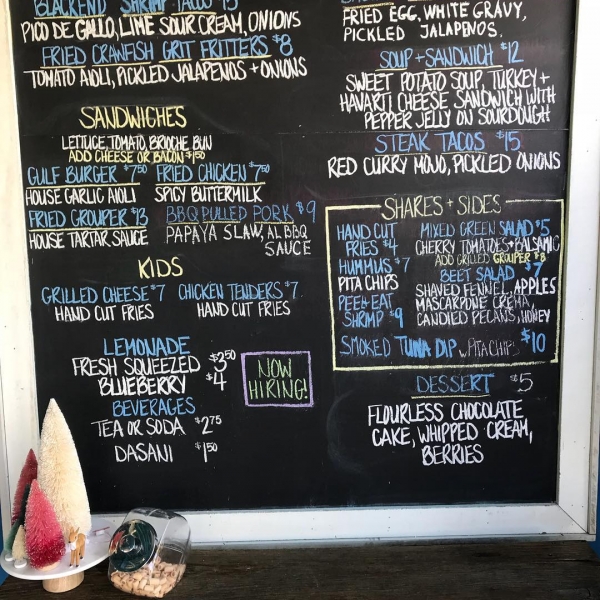 BLACKEND SHRIMP TACOS
PICO DE GALLO, LIME SOUR CREAM, ONIONS
FRIED CRAWFISH GRIT FRITTERS $8
TOMATO AIOLI, PICKLED JALAPENOS + ONIONS
SANDWICHES
LETTUCE, TOMATO, BRIOCHE BUN
ADD CHEESE OR BACON $1.50
GULF BURGER $7.50 FRIED CHICKEN $7.50
HOUSE GARLIC AIOLI SPICY BUTTERMILK
FRIED GROUPER $13 BBQ PULLED PORK $9
HOUSE TARTAR SAUCE PAPAYA SLAW, AL BBQ
SAUCE
KIDS
GRILLED CHEESE $7 CHICKEN TENDERS $7
HAND CUT FRIES HAND CUT FRIES
LEMONADE
FRESH SQUEEZED $3.50
BLUEBERRY $4
BEVERAGES
TEA OR SODA $2.75
DASANI $1.50
NOW
HIRING!
FRIED EGG, WHITE GRAVY,
PICKLED JALAPENOS.
SOUP + SANDWICH $12
SWEET POTATO SOUP, TURKEY +
HAVARTI CHEESE SANDWICH WITH
PEPPER JELLY ON SOURDOUGH
STEAK TACOS $15
RED CURRY MOJO, PICKLED ONIONS
SHARES + SIDES
HAND CUT
FRIES $4
HUMMUS $7
PITA CHIPS
PEEL + EAT
SHRIMP $9
MIXED GREEN SALAD $5
CHERRY TOMATOES + BALSAMIC
ADD GRILLED GROUPER $8
BEET SALAD $7
SHAVED FENNEL, APPLES
MASCARPONE CREMA,
CANDIED PECANS, HONEY
SMOKED TUNA DIP W/ PITA CHIPS $10
DESSERT $5
FLOURLESS CHOCOLATE
CAKE, WHIPPED CREAM,
BERRIES